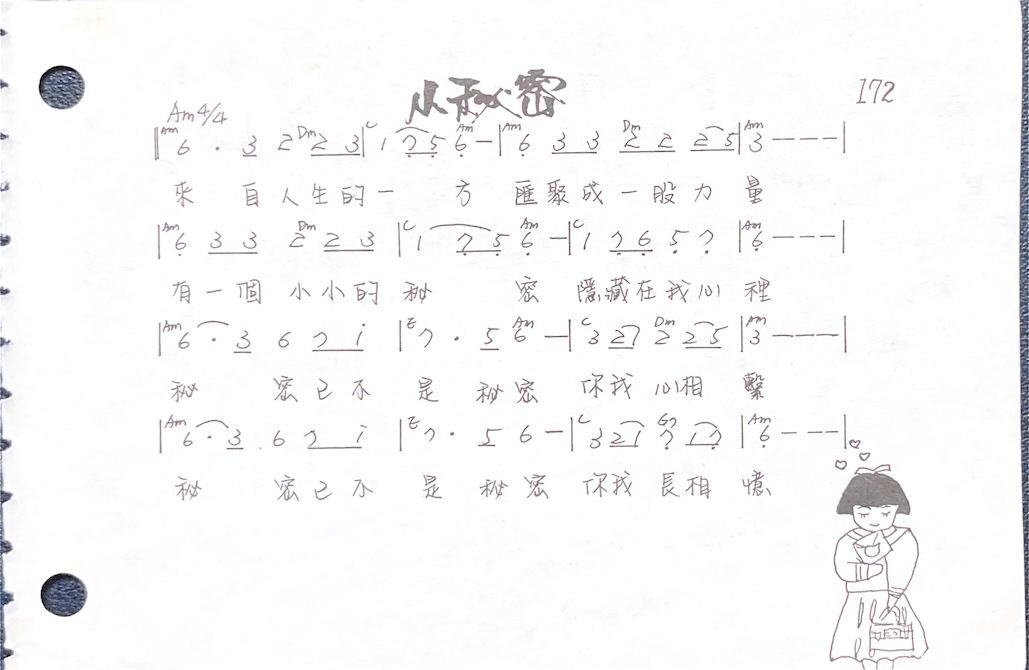 小秘密
172
Am 4/4
|Am 6 · 3 2 Dm 2 3 |C 1 7 5 Am 6 — |Am 6 3 3 Dm 2 2 2 5 |Am 3 — — — |
來 自人生的一 方 匯聚成一股力 量
|Am 6 3 3 2 Dm 2 3 |C 1 7 5 Am 6 — |C 1 7 6 5 7 |Am 6 — — — |
有一個 小小的 秘 密 隱藏在我心 裡
|Am 6 · 3 6 7 i |E 7 · 5 Am 6 — |C 3 2 7 Dm 2 2 5 |Am 3 — — — |
秘 密已不 是 秘密 你我 心相 繫
|Am 6 · 3 6 7 i |E 7 · 5 6 — |C 3 2 1 G7 7 1 7 |Am 6 — — — |
秘 密已不 是 秘密 你我 長相 憶